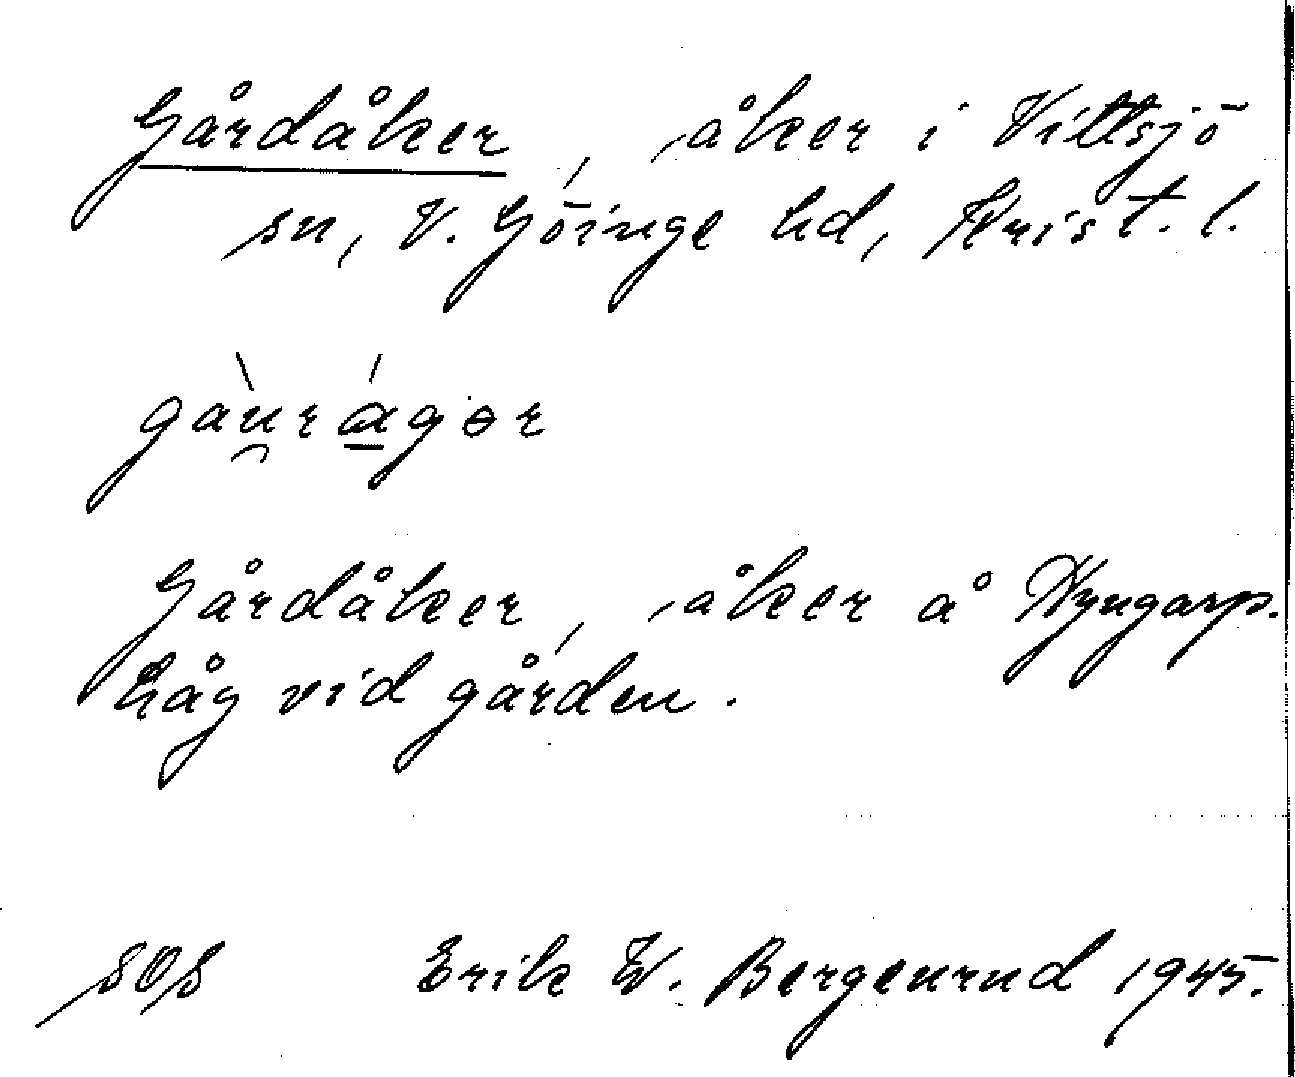 Gårdåker, åker i Vittsjö
sn, V. Göinge hd, Krist. l.
gàu̯rágər
Gårdåker, åker å Nyngarp.
Låg vid gården.
SOS Erik W. Bergenrud 1945.